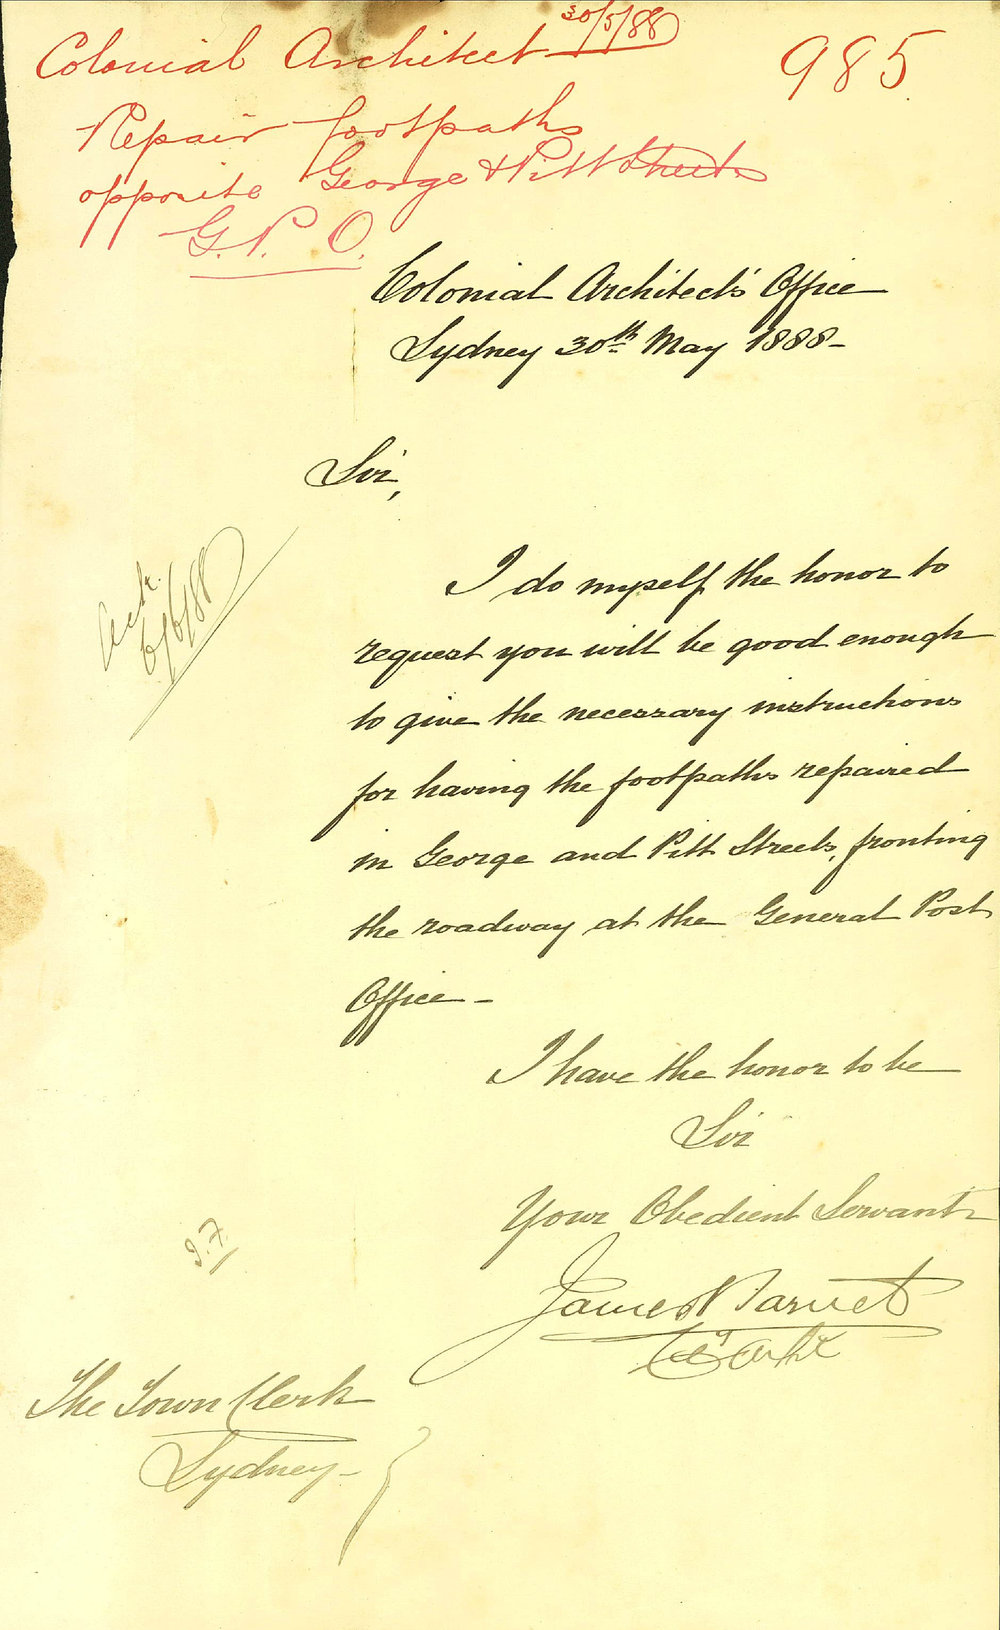 Colonial Architect 30/5/88
985
Repair footpaths
opposite George & Pitt Streets
G. P. O.
Colonial Architect's Office
Sydney 30th May 1888-
Sir,
Ack.
6/6/88
I do myself the honor to
request you will be good enough
to give the necessary instructions
for having the footpaths repaired
in George and Pitt Streets, fronting
the roadway at the General Post
Office -
I have the honor to be
Sir
Your Obedient Servant
James Barnet
Col Archt
The Town Clerk
Sydney -